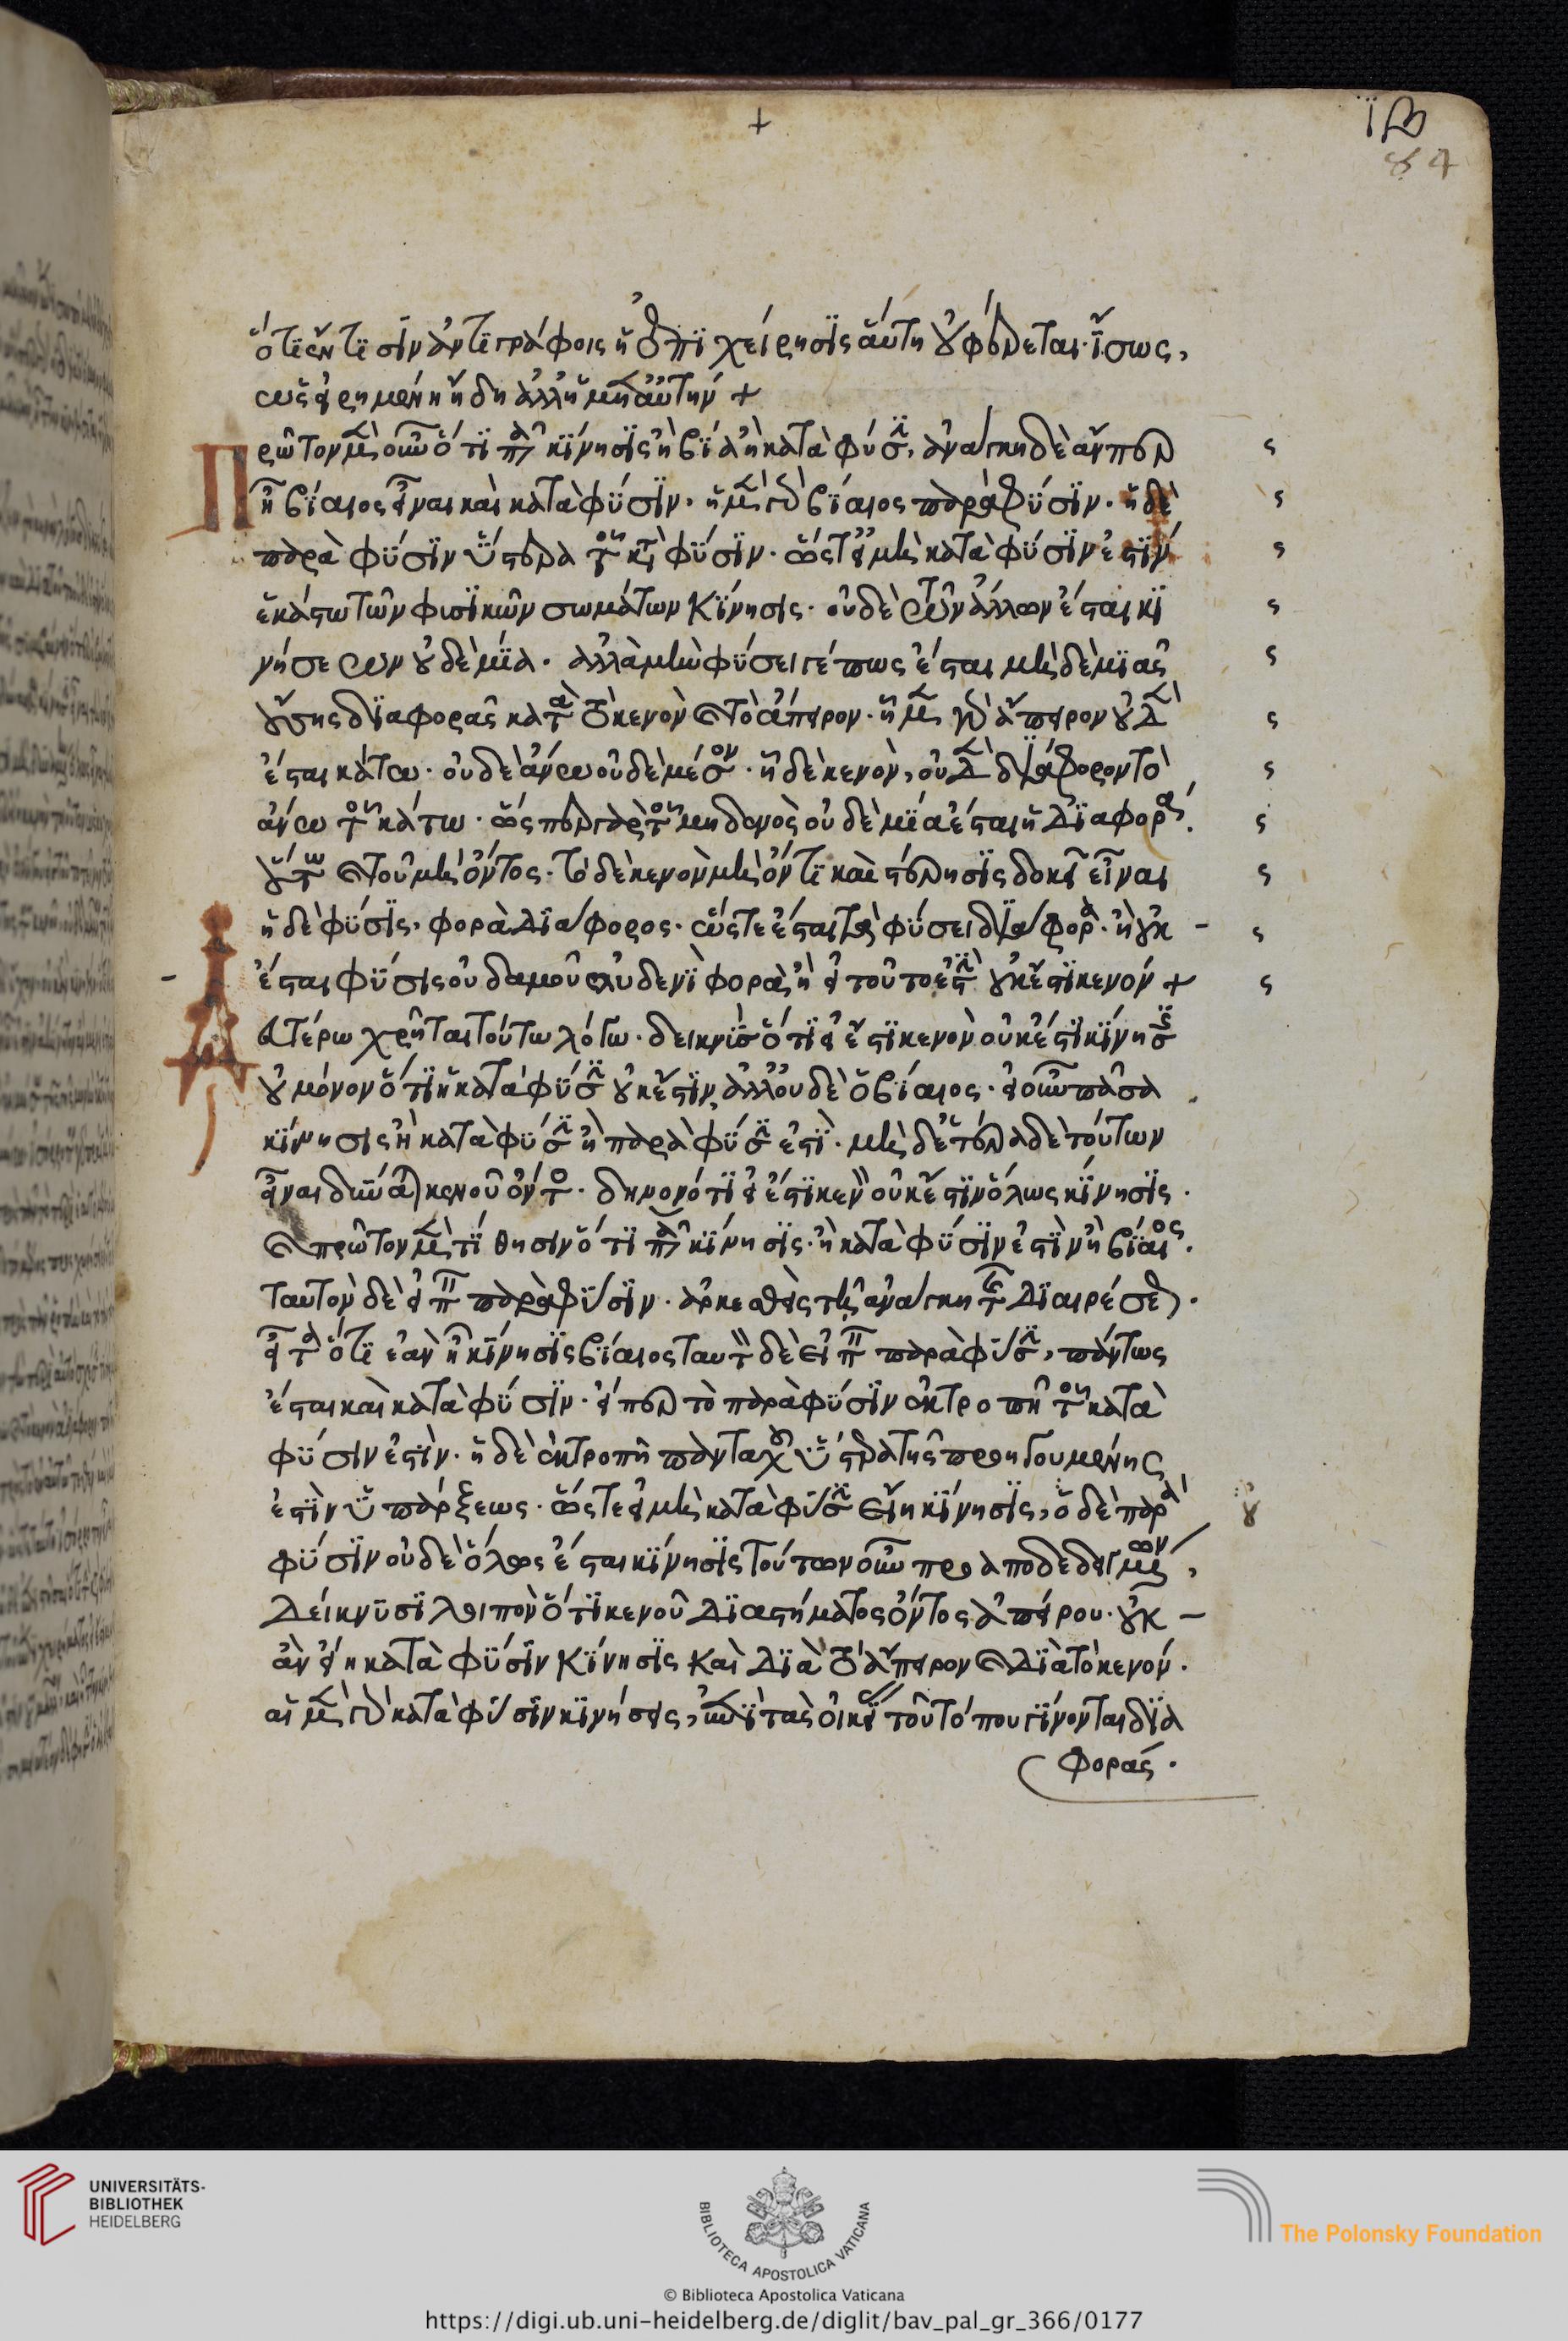 +
ϊβ
84
ὅτι ἔν τισιν ἀντιγράφοις ἡ ἐπιχείρησις αὕτη οὐ φέρεται· ἴσως,
ὡς εἰρημένη ἤδη ἀλλ' ἡμῖν αὐτὴν +
Πρῶτον μὲν οὖν ὅτι πᾶσα κίνησις ἢ βίᾳ ἢ κατὰ φύσιν, ἀνάγκη δὲ ἄνπερ
ᾖ βίαιος εἶναι καὶ κατὰ φύσιν· ἡ μὲν γὰρ βίαιος παρὰ φύσιν· ἡ δὲ
παρὰ φύσιν ὑστέρα τῆς κατὰ φύσιν· ὥστ' εἰ μὴ κατὰ φύσιν ἐστὶν
ἑκάστω τῶν φυσικῶν σωμάτων κίνησις· οὐδὲ τῶν ἄλλων ἔσται κι
νήσεων οὐδεμία· ἀλλὰ μὴν φύσει γε πῶς ἔσται μὴδεμιᾶς
οὔσης διαφορᾶς κατὰ τὸ κενὸν καὶ τὸ ἄπειρον· ἧ μὲν γὰρ ἄπειρον οὐδὲν
ἔσται κάτω· οὐδὲ ἄνω οὐδὲ μέσον· ἧ δὲ κενὸν, οὐδὲν διάφορον τὸ
ἄνω τοῦ κάτω· ὥσπερ γὰρ τοῦ μηδενὸς οὐδεμία ἔσται διαφορά.
οὕτω καὶ τοῦ μὴ ὄντος· τὸ δὲ κενὸν μὴ ὄν τι καὶ στέρησις δοκεῖ εἶναι
ἡ δὲ φύσις· φορὰ διάφορος· ὥστε ἔσται τὰ φύσει διάφορα· ἢ οὐκ –
ἔσται φύσις οὐδαμοῦ οὐδενὶ φορὰ, ἢ εἰ τοῦτο ἐστὶν οὐκ ἔστι κενόν +
Διατέρω χρῆται τούτω λόγω· δεικνὺς ὅτι εἰ ἔστι κενὸν οὐκ ἔστι κίνησις
οὐ μόνον ὅτι ἡ κατὰ φύσιν οὐκ ἔστιν, ἀλλ' οὐδὲ ὁ βίαιος· εἰ οὖν πᾶσα
κίνησις ἢ κατὰ φύσιν ἢ παρὰ φύσιν ἐστὶ· μὴδετέρα δὲ τούτων
εἶναι δύναται κενοῦ ὄντος· δηλονότι εἰ ἔστι κενὸν οὐκ ἔστιν ὅλως κίνησις.
καὶ πρῶτον μὲν τίθησιν ὅτι πᾶσα κίνησις· ἢ κατὰ φύσιν ἐστὶν ἢ βίαιος.
ταυτὸν δὲ εἰπεῖν παρὰ φύσιν· ἀρκεσθεὶς τῇ ἀνάγκη τῆς διαιρέσεως.
εἶτα ὅτι ἐὰν ᾖ κίνησις βίαιος ταυτὸν δὲ εἰπεῖν παρὰ φύσιν, πάντως
ἔσται καὶ κατὰ φύσιν· εἴπερ τὸ παρὰ φύσιν ἐκτροπὴ τοῦ κατὰ
φύσιν ἐστὶν· ἡ δὲ ἐκτροπὴ πανταχοῦ ὑστέρα τῆς προηγουμένης
ἐστὶν ὑπάρξεως· ὥστε εἰ μὴ κατὰ φύσιν εἴη κίνησις, ὁ δὲ παρὰ
φύσιν οὐδὲ ὅλως ἔσται κίνησις τούτων οὖν προαποδεδειγμένων,
δείκνυσι λοιπὸν ὅτι κενοῦ διαστήματος ὄντος ἀπείρου· οὐκ –
ἂν εἴη κατὰ φύσιν κίνησις καὶ διὰ τὸ ἄπειρον καὶ διὰ τὸ κενόν.
αἱ μὲν γὰρ κατὰ φύσιν κινήσεις, ἐπὶ τὰς οἰκείας τοῦ τόπου γίνονται δια
φοράς.
UNIVERSITÄTS-
BIBLIOTHEK
HEIDELBERG
BIBLIOTECA APOSTOLICA VATICANA
The Polonsky Foundation
© Biblioteca Apostolica Vaticana
https://digi.ub.uni-heidelberg.de/diglit/bav_pal_gr_366/0177